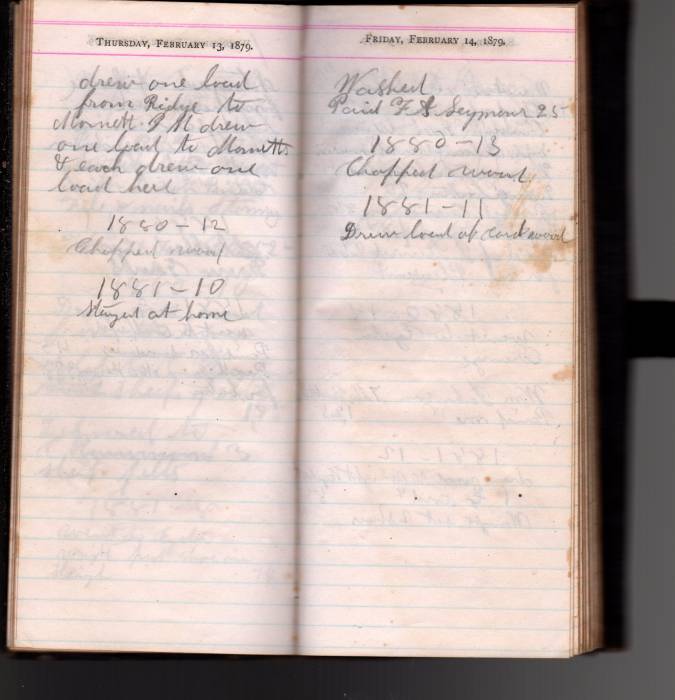 THURSDAY, FEBRUARY 13, 1879.
drew one load
from Ridge to
I M drew
one load to
& each drew one
load here
1880-12
Chopped wood
1881-10
Stayed at home
FRIDAY, FEBRUARY 14, 1879.
Washed
Paid Seymour 25
1880-13
Chopped wood
1881-11
Drew load of cord wood